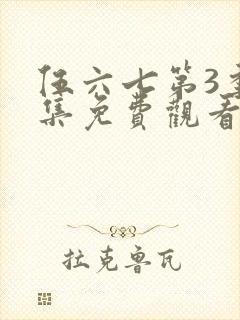 伍六七第3季
集免費觀看
拉克魯瓦